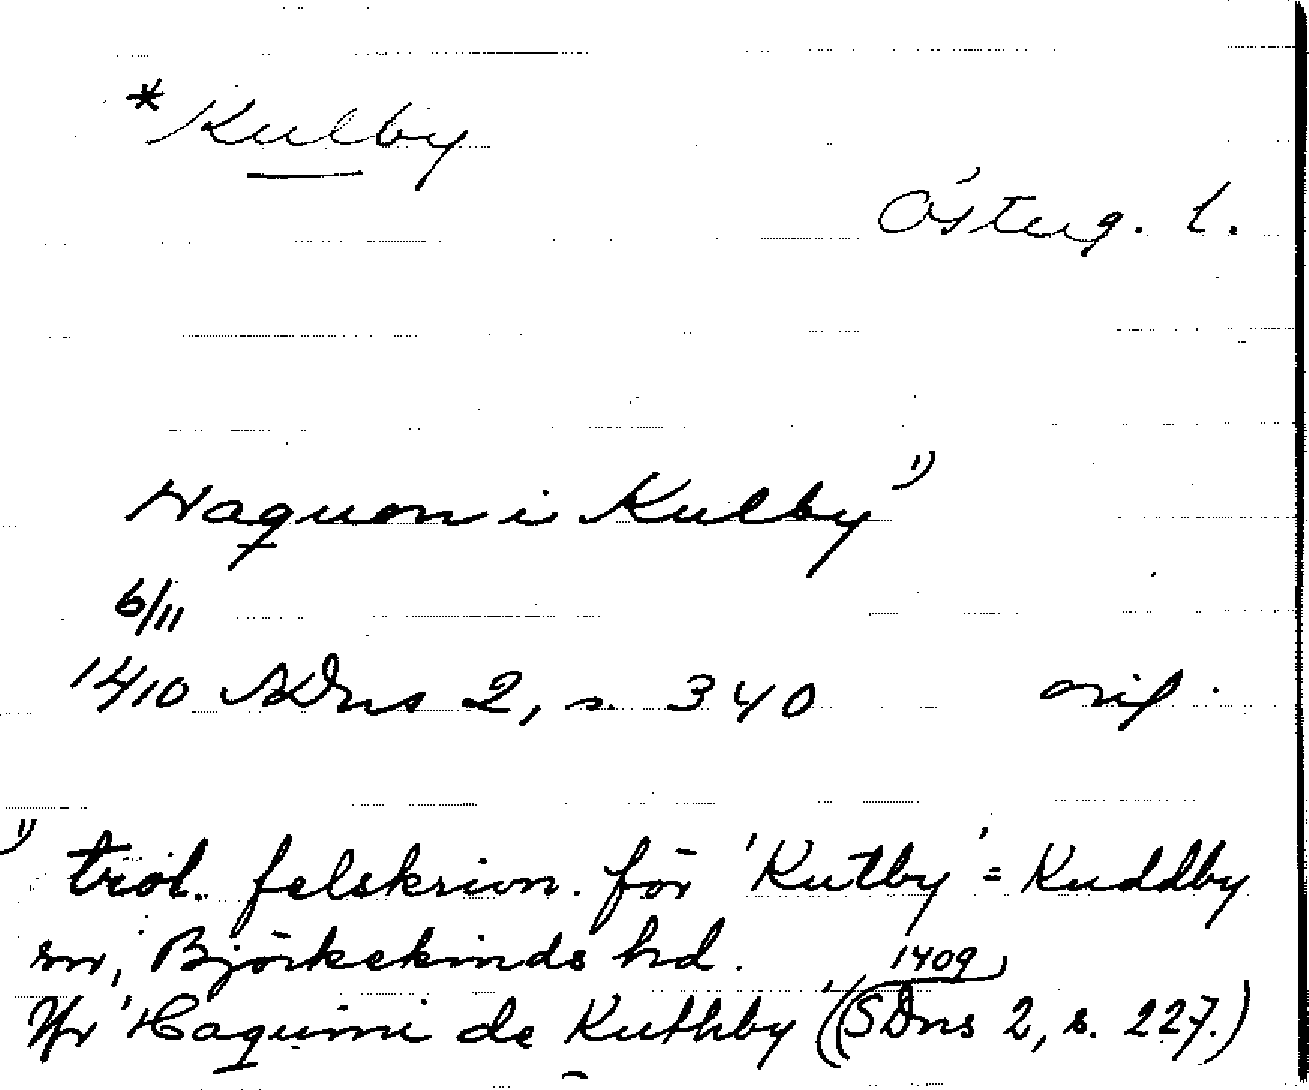 *Kulby
Österg. l.
Haquon i Kulby 1)
6/11
1410 SDns 2, s. 340 orig.
1) trol. felskrivn. för 'Kutby' = Kuddby
sn, Björkekinds hd.
Jfr 'Haquini de Kuthby' (1409 SDns 2, s. 227.)